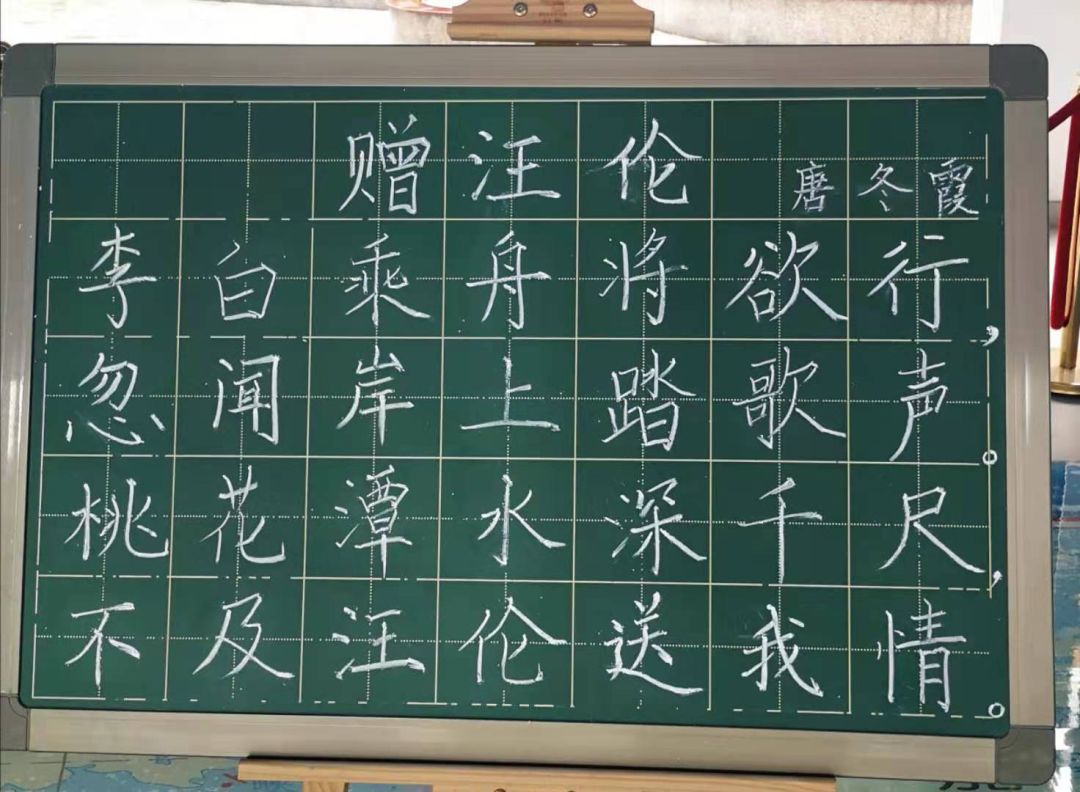 赠汪伦 唐冬霞
李白乘舟将欲行，
忽闻岸上踏歌声。
桃花潭水深千尺，
不及汪伦送我情。